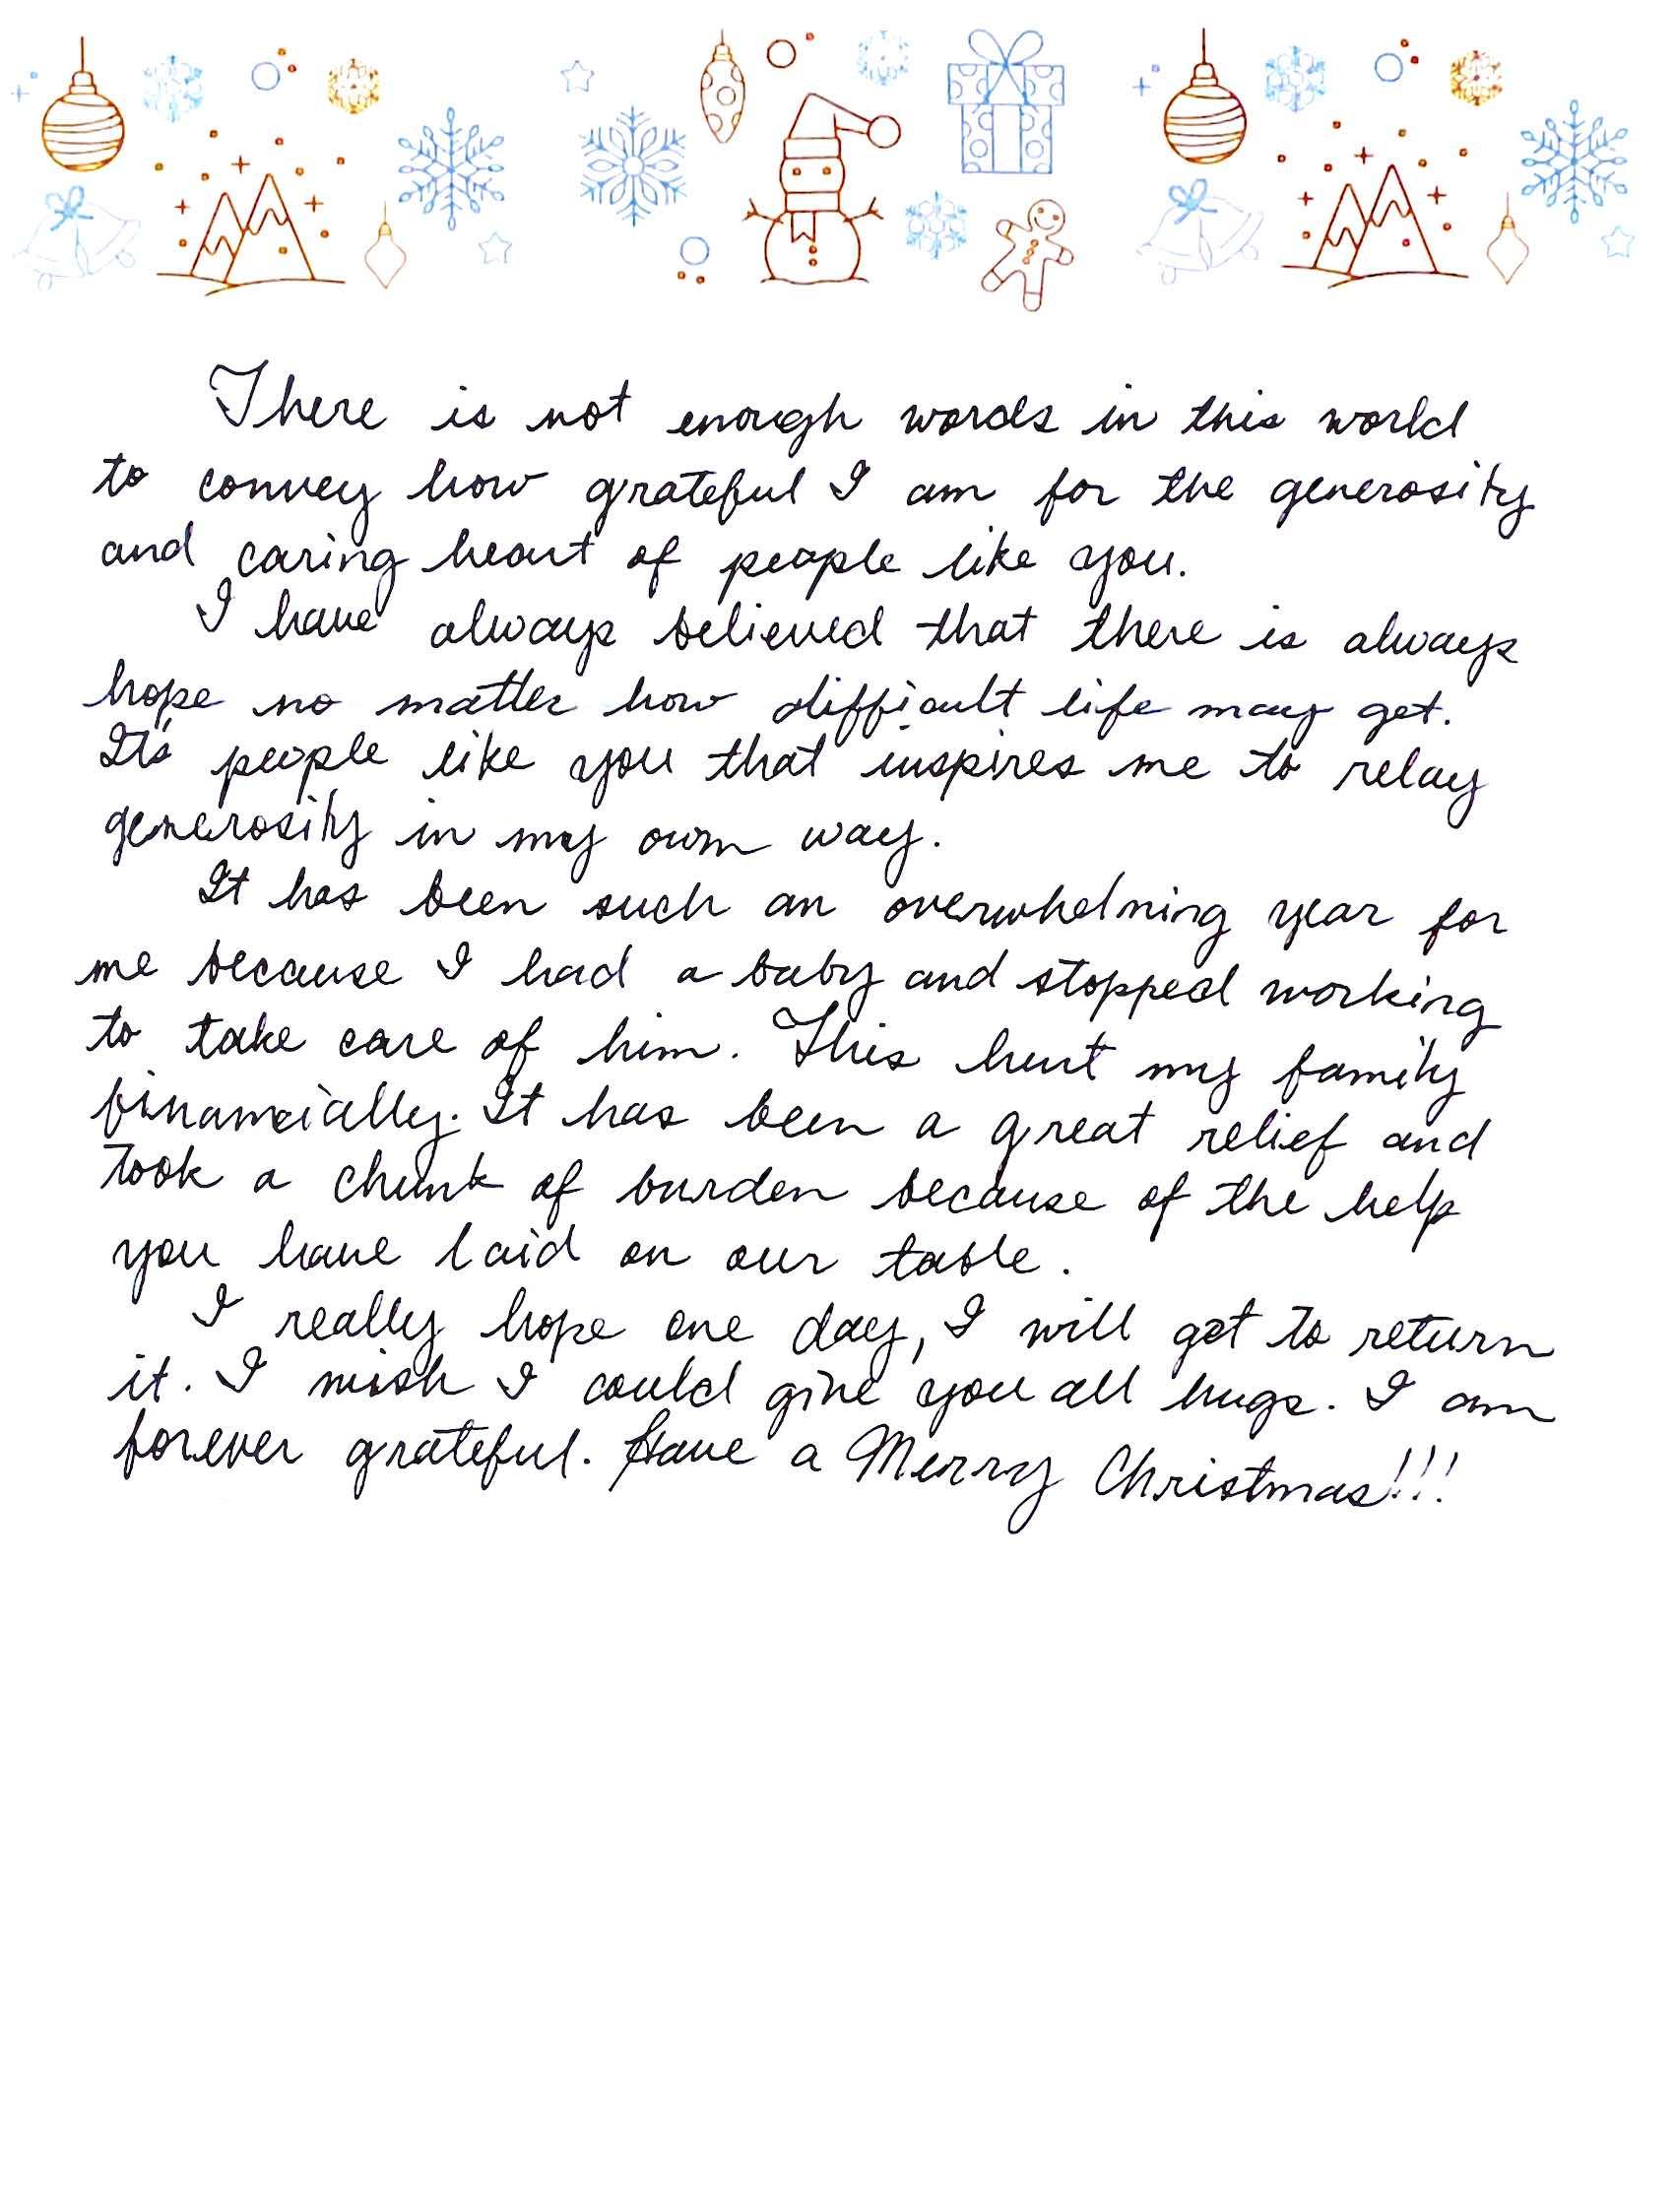 There is not enough words in this world
to convey how grateful I am for the generosity
and caring heart of people like you.
I have always believed that there is always
hope no matter how difficult life may get.
It's people like you that inspires me to relay
generosity in my own way.
It has been such an overwhelming year for
me because I had a baby and stopped working
to take care of him. This hurt my family
financially. It has been a great relief and
took a chunk of burden because of the help
you have laid on our table.
I really hope one day, I will get to return
it. I wish I could give you all hugs. I am
forever grateful. Have a Merry Christmas!!!